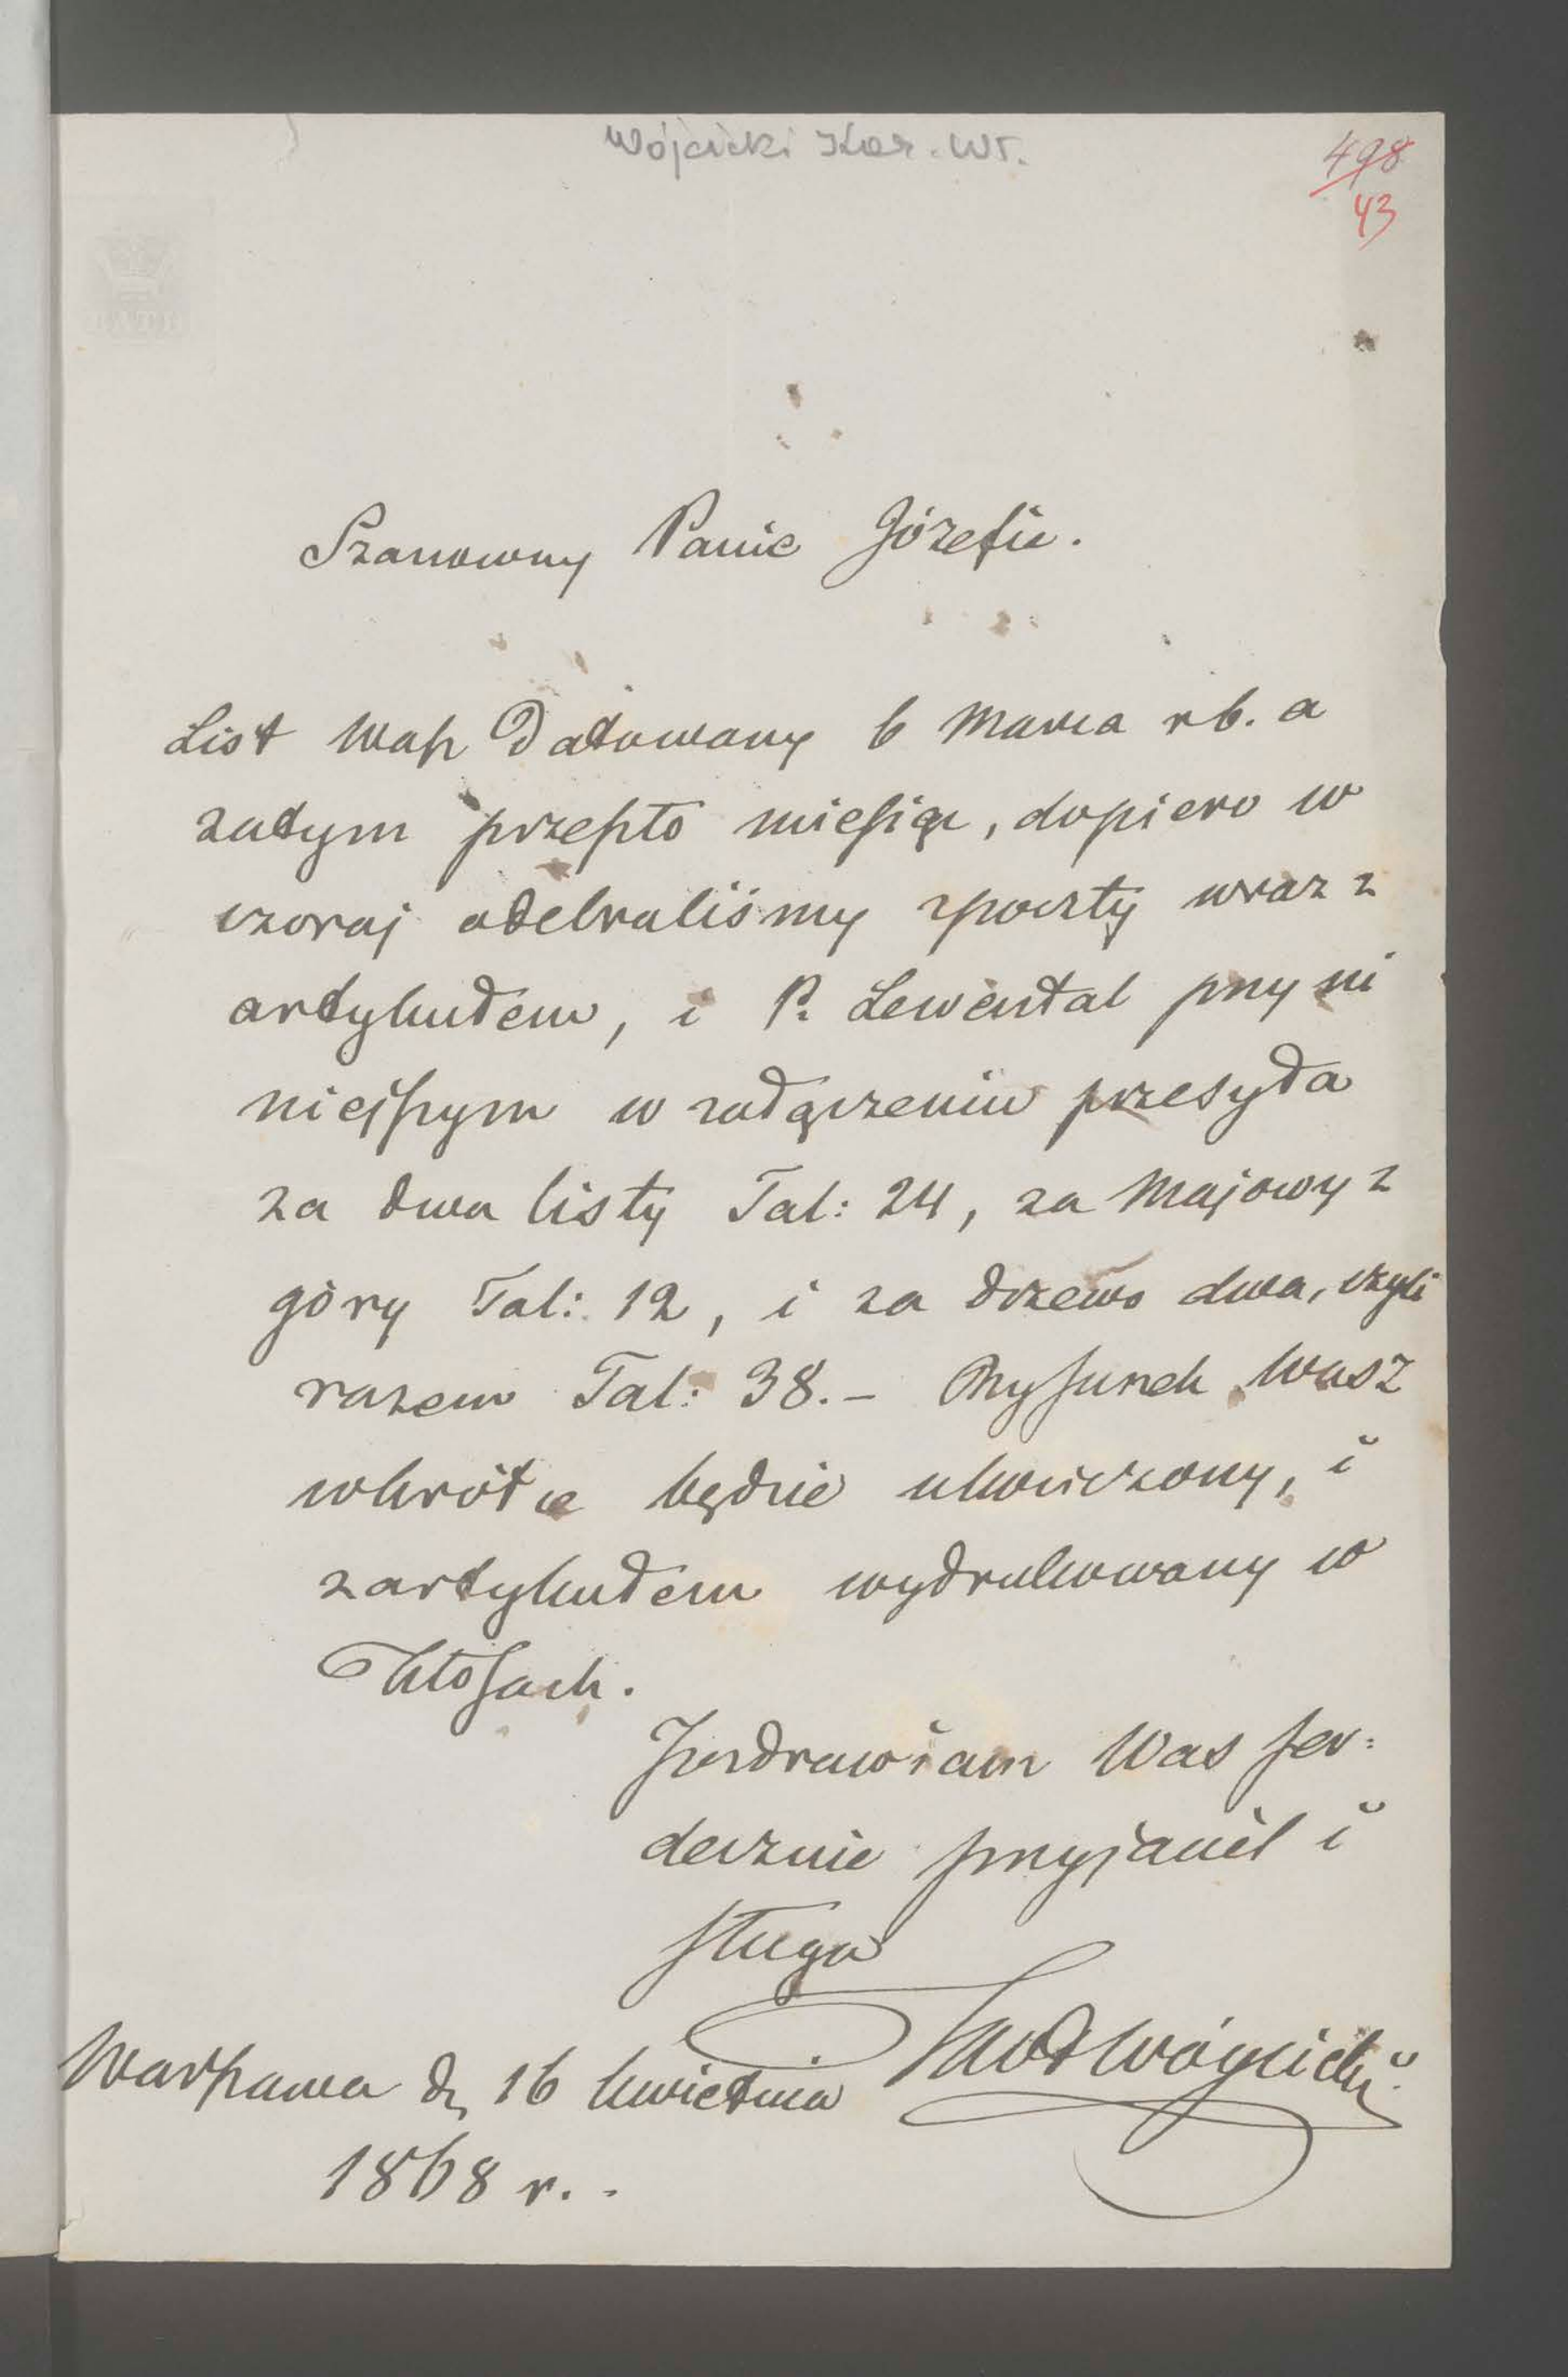 Wójcicki Kaz. Wł.
498
43
Szanowny Panie Józefie.
List Wasz datowany 6 Marca rb. a
zatym przeszło miesiąc, dopiero w
czoraj odebraliśmy z poczty wraz z
artykułem, i P. Lewental przy ni
niejszym w załączeniu przesyła
za dwa listy Tal: 24, za Majowy z
góry Tal: 12, i za drzewo dwa, czyli
razem Tal: 38.– Rysunek Wasz
wkrótce będzie ukończony, i
z artykułem wydrukowany w
Kłosach.
Pozdrawiam Was ser:
decznie przyjaciel i
sługa
KWł Wójcicki
Warszawa d. 16 kwietnia
1868 r..